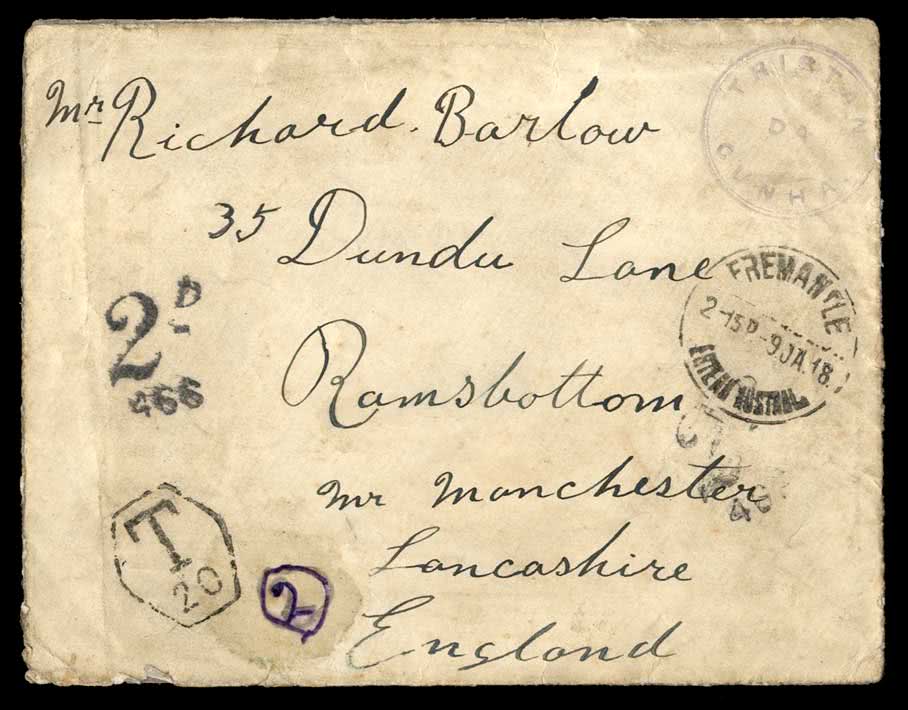 Mr Richard. Barlow
35 Dundu Lane
Ramsbottom
nr Manchester
Lancashire
England
TRISTAN
DA
CUNHA
FREMANTLE
2-15P-9JA.18.
WESTERN AUSTRAL
2D
466
T
20
2